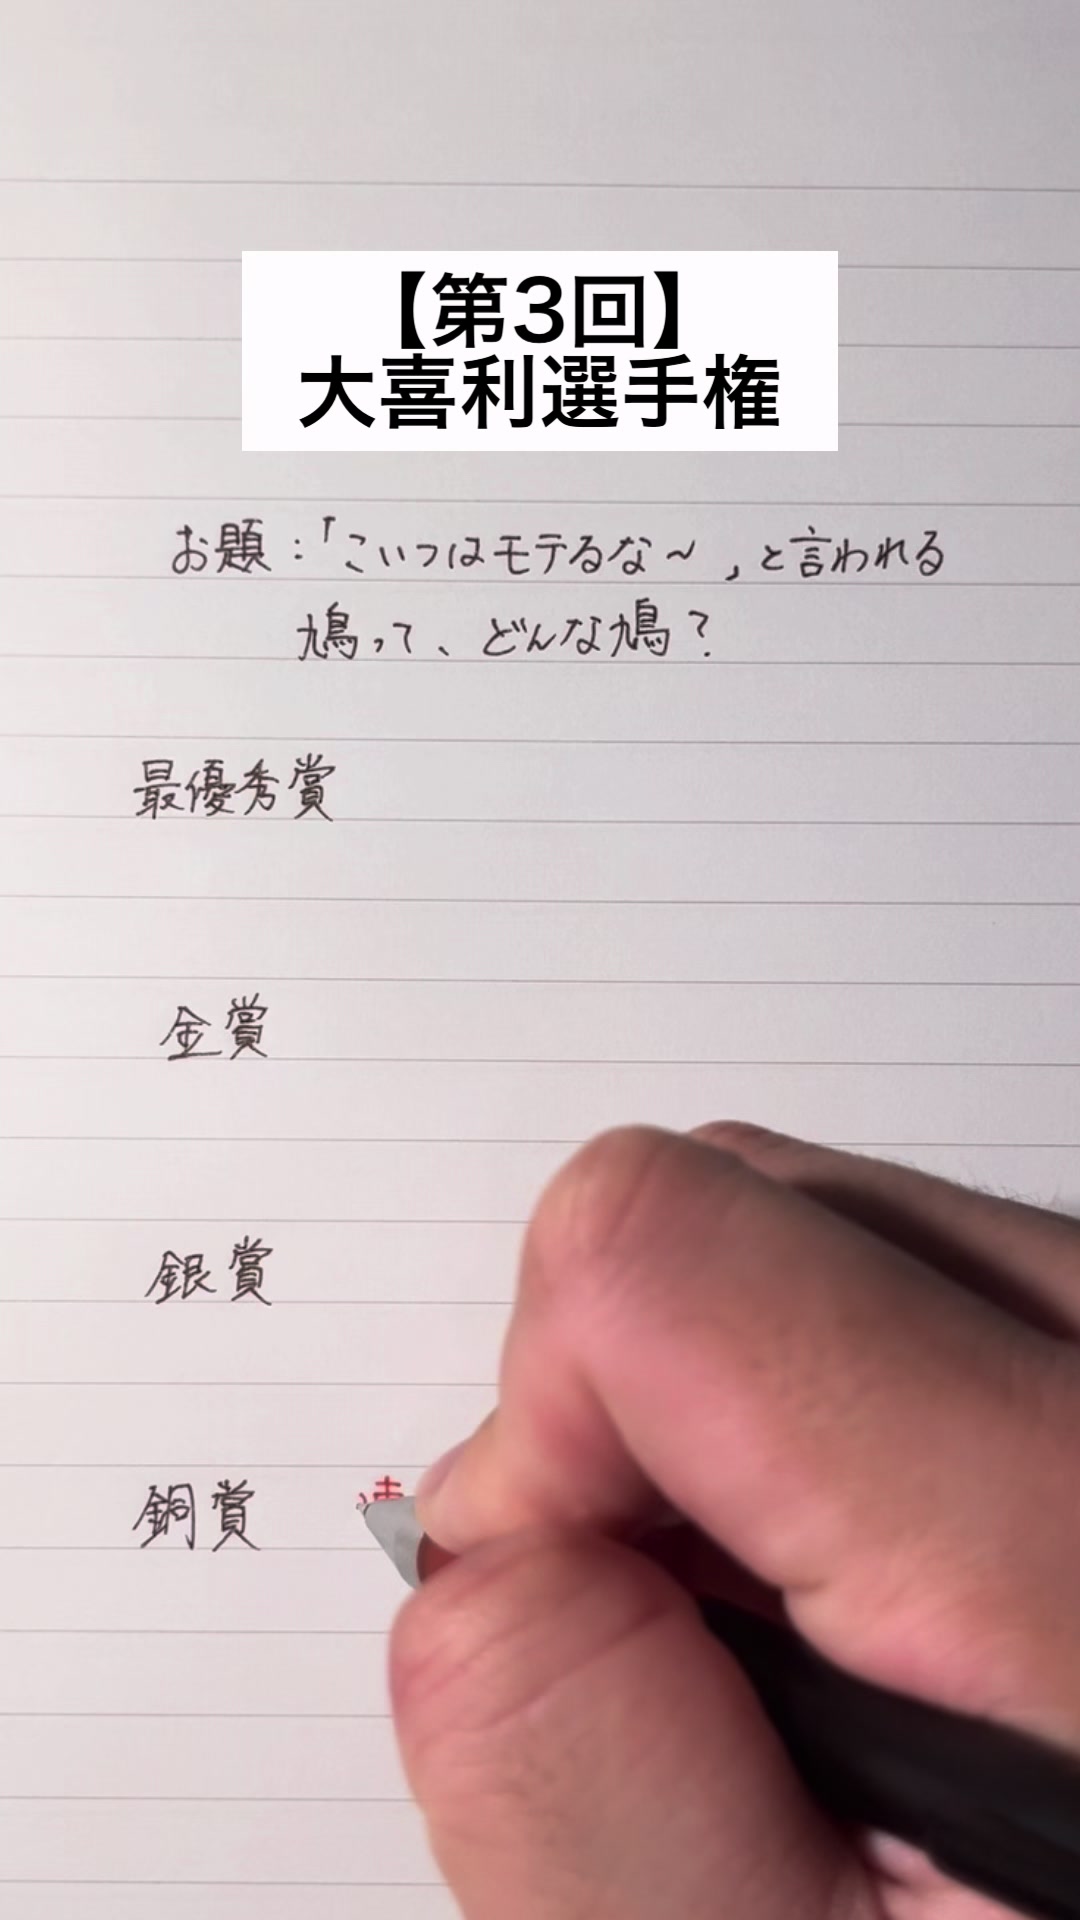 【第3回】
大喜利選手権
お題:「こいつはモテるな～」と言われる
鳩って、どんな鳩?
最優秀賞
金賞
銀賞
銅賞